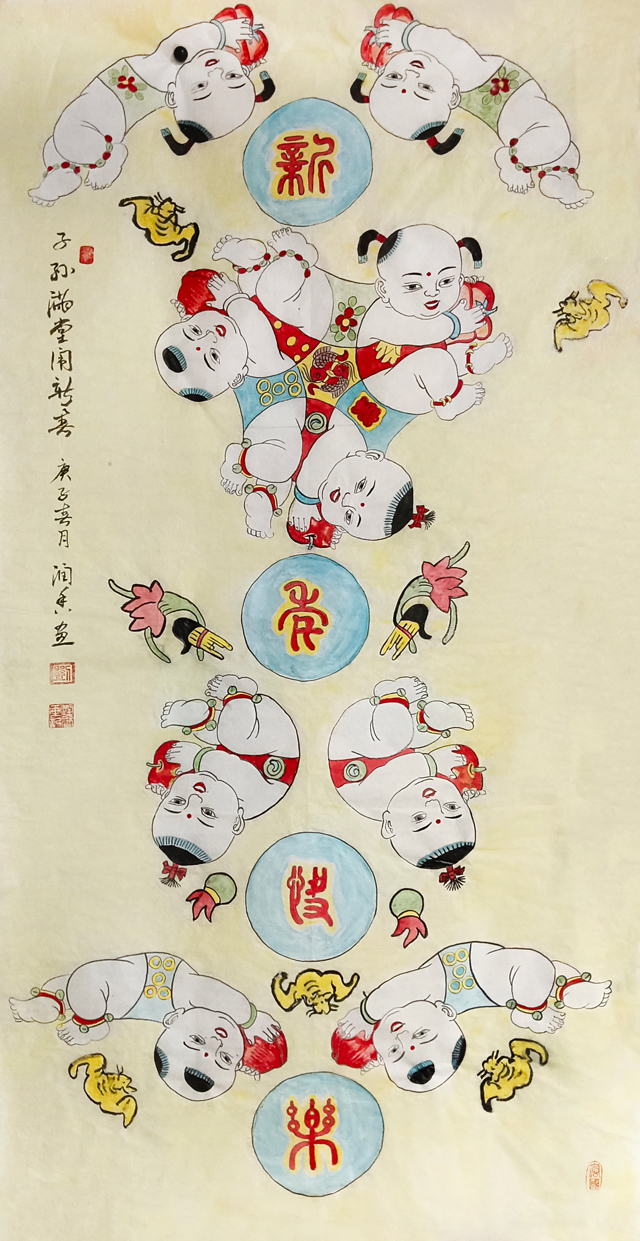 新
年
快
樂
子孙满堂闹新春 庚子春月 润 画